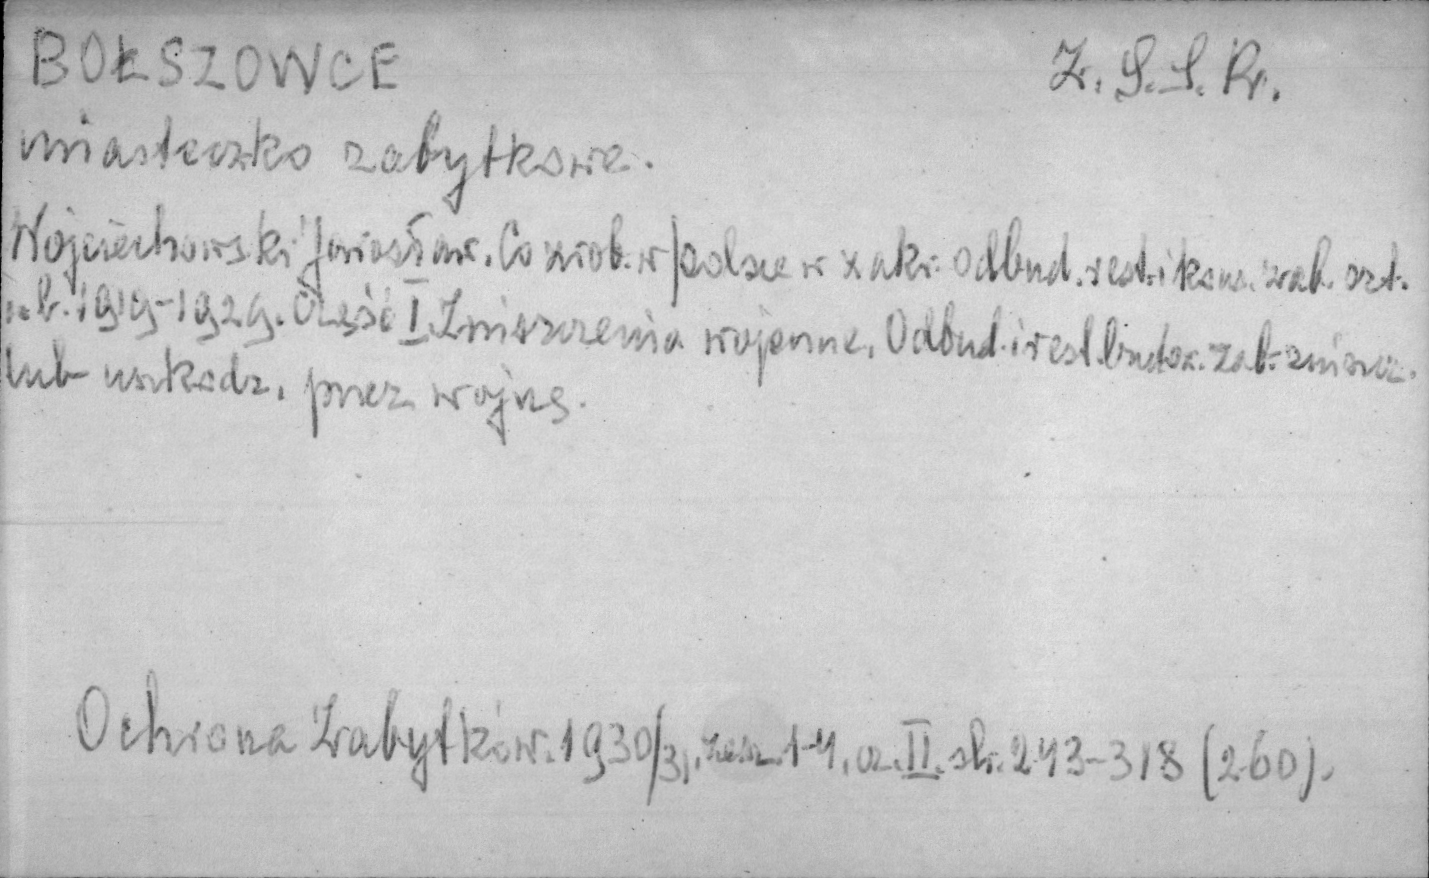 BOŁSZOWCE Z.S.S.R.
miasteczko zabytkowe.
Wojciechowski Jarosław. Co zrob. w Polsce w zakr. odbud. rest. i kons. zab. szt.
i b. 1919-1929. Część I. Zniszczenia wojenne. Odbud. i rest. budow. zab. zniszcz.
lub uszkodz. przez wojnę.
Ochrona Zabytków. 1930/31, zesz. 1-4, cz. II. str. 243-318 (260).